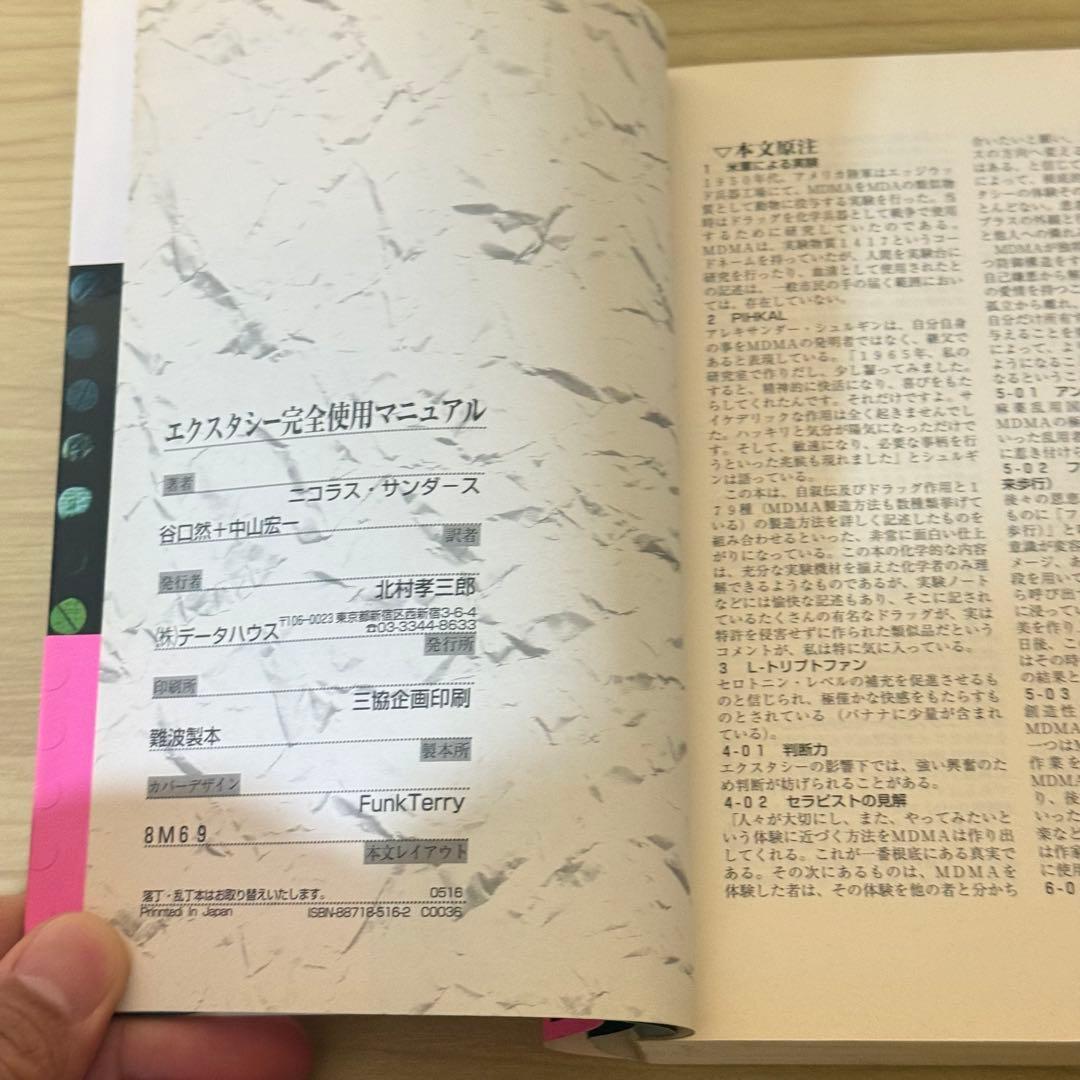 エクスタシー完全使用マニュアル
著者
ニコラス・サンダース
谷口然+中山宏一
訳者
発行者
北村孝三郎
〒106-0023 東京都新宿区西新宿3-6-4
(株)データハウス ☎03-3344-8633
発行所
印刷所
三協企画印刷
難波製本
製本所
カバーデザイン
FunkTerry
8M69
本文レイアウト
落丁・乱丁本はお取り替えいたします。 0516
Prinnted In Japan ISBN-88718-516-2 C0036
▽本文原注
1 米軍による実験
1950年代、アメリカ陸軍はエッジウッ
ド兵器工場にて、MDMAをMDAの類似物
質として動物に投与する実験を行った。当
時はドラッグを化学兵器として戦争で使用
するために研究していたのである。
MDMAは、実験物質1417というコー
ドネームを持っていたが、人間を実験台に
研究を行ったり、血清として使用されたと
の記述は、一般市民の手の届く範囲におい
ては、存在していない。
2 PIHKAL
アレキサンダー・シュルギンは、自分自身
の事をMDMAの発明者ではなく、義父で
あると表現している。「1965年、私の
研究室で作りだし、少し齧ってみました。
すると、精神的に快活になり、喜びをもた
らしてくれたんです。それだけですよ。サ
イケデリックな作用は全く起きませんでし
た。ハッキリと気分が陽気になっただけで
す。そして、敏速になり、必要な事柄を行
うといった兆候も現れました」とシュルギ
ンは語っている。
この本は、自叙伝及びドラッグ作用と1
79種(MDMA製造方法も数種類挙げて
いる)の製造方法を詳しく記述したものを
組み合わせるといった、非常に面白い仕上
がりになっている。この本の化学的な内容
は、充分な実験機材を揃えた化学者のみ理
解できるようなものであるが、実験ノート
などには愉快な記述もあり、そこに記され
ているたくさんの有名なドラッグが、実は
特許を侵害せずに作られた類似品だという
コメントが、私は特に気に入っている。
3 L-トリプトファン
セロトニン・レベルの補充を促進させるも
のと信じられ、極僅かな快感をもたらすも
のとされている(バナナに少量が含まれ
ている)。
4-01 判断力
エクスタシーの影響下では、強い興奮のた
め判断が妨げられることがある。
4-02 セラピストの見解
「人々が大切にし、また、やってみたいと
いう体験に近づく方法をMDMAは作り出
してくれる。これが一番根底にある真実で
ある。その次にあるものは、MDMAを
体験した者は、その体験を他の者と分かち
合いたいと願い、
スの方向へ変える
はある、と信じて
によって、継続的
タシーの体験その
とんどない。患者
プラスの外観と
と他人への優れ
MDMAが独特
つ防御構造をす
自己嫌悪から解
の愛情を持つこ
孤立から離れ、
自分だけ所有す
与えることを
によって、より
ようになるこ
なるというこ
5-01 アン
麻薬乱用国
MDMAの
いった乱用者
に惹き付けら
5-02 フ
来歩行)
後々の恩恵
ものに「フ
歩行)」と
意識が変容
メージ、あ
段を用いて
ら呼び出
に浸ってい
美を作り
日後、こ
はその時
の結果と
5-03
創造性
MDMA
一つはM
作業を
MDMA
り、後
いった
楽など
は作家
に使用
6-0